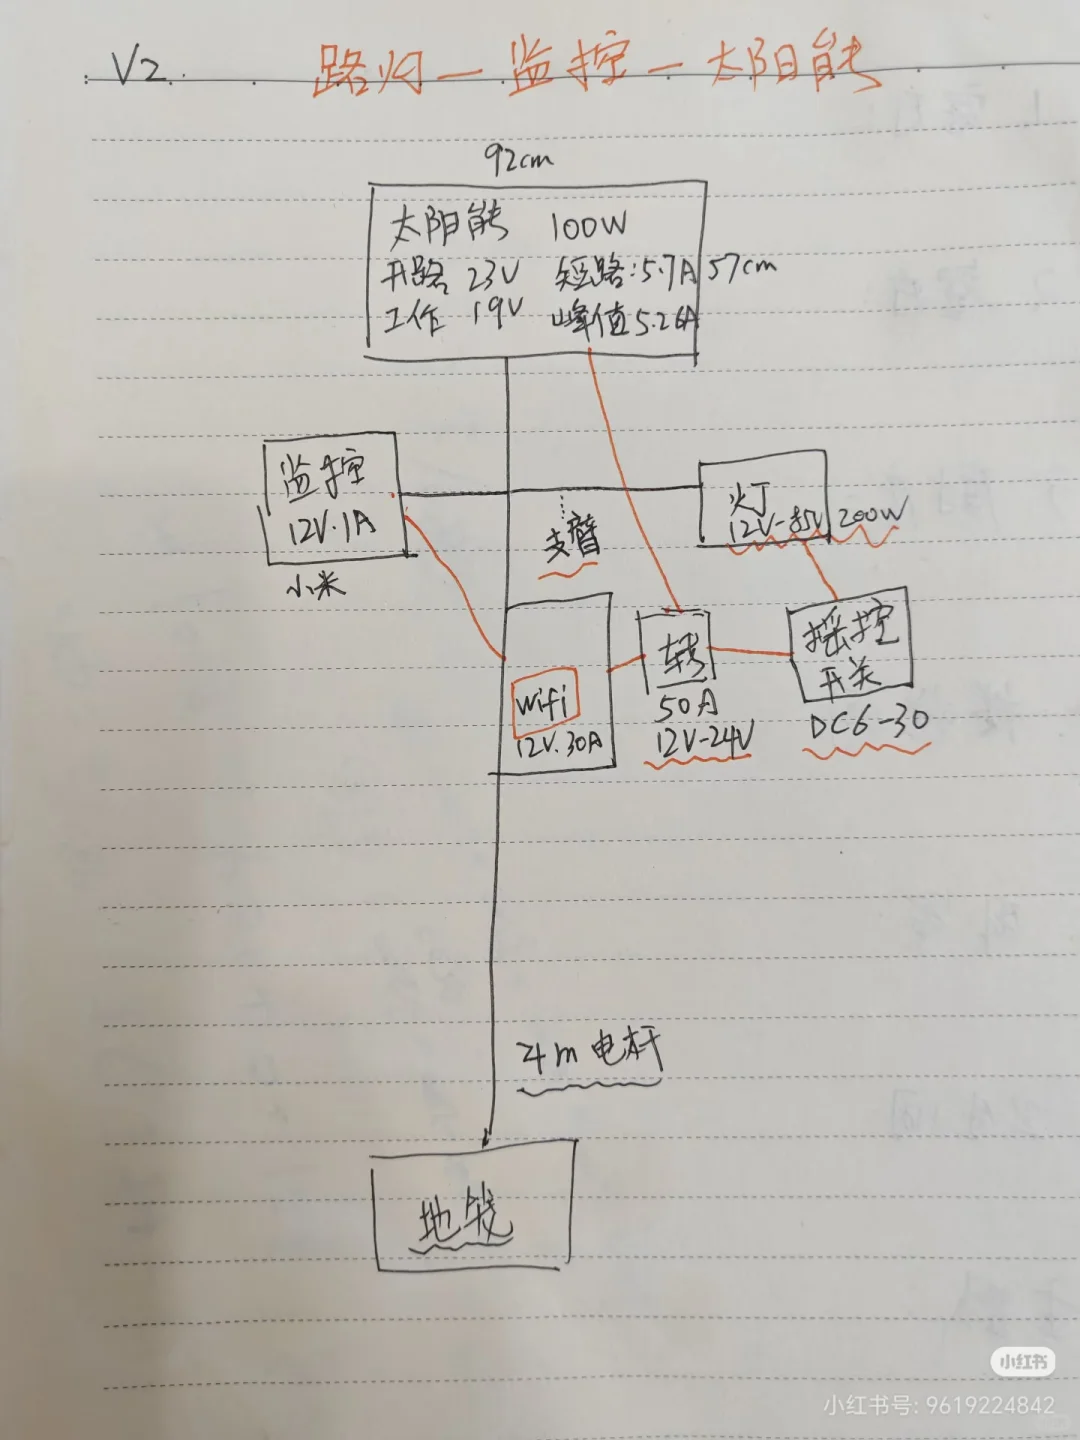 V2. 路灯-监控-太阳能
92cm
太阳能 100W
开路 23V 短路:5.7A
57cm
工作 19V 峰值5.26A
监控
12V·1A
小米
支臂
灯
12V-85V
200W
wifi
12V.30A
转
50A
12V-24V
摇控
开关
DC6-30
4m电杆
地笼
小红书
小红书号: 9619224842